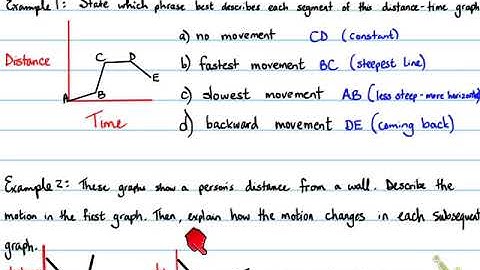 Example 1: State which phrase best describes each segment of this distance-time graph
a) no movement CD (constant)
Distance
C D
b) fastest movement BC (steepest line)
E
A B
c) slowest movement AB (less steep - more horizontal)
Time
d) backward movement DE (coming back)
Example 2: These graphs show a person's distance from a wall. Describe the
motion in the first graph. Then, explain how the motion changes in each subsequent
graph.